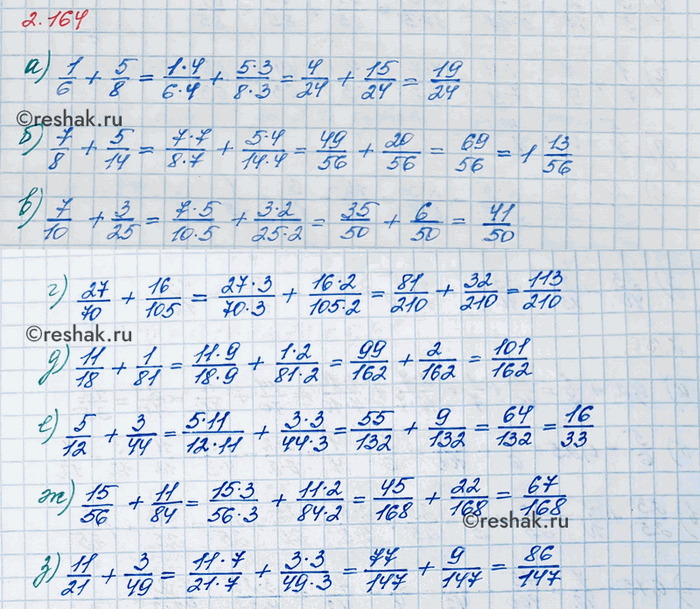 2.164
а) 1/6 + 5/8 = 1·4/6·4 + 5·3/8·3 = 4/24 + 15/24 = 19/24
©reshak.ru
б) 7/8 + 5/14 = 7·7/8·7 + 5·4/14·4 = 49/56 + 20/56 = 69/56 = 1 13/56
в) 7/10 + 3/25 = 7·5/10·5 + 3·2/25·2 = 35/50 + 6/50 = 41/50
г) 27/70 + 16/105 = 27·3/70·3 + 16·2/105·2 = 81/210 + 32/210 = 113/210
©reshak.ru
д) 11/18 + 1/81 = 11·9/18·9 + 1·2/81·2 = 99/162 + 2/162 = 101/162
е) 5/12 + 3/44 = 5·11/12·11 + 3·3/44·3 = 55/132 + 9/132 = 64/132 = 16/33
ж) 15/56 + 11/84 = 15·3/56·3 + 11·2/84·2 = 45/168 + 22/168 = 67/168
©reshak.ru
з) 11/21 + 3/49 = 11·7/21·7 + 3·3/49·3 = 77/147 + 9/147 = 86/147